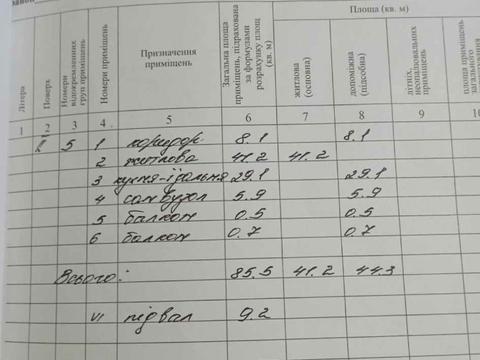 Площа (кв. м)
Літера
Поверх
Номери відокремлених груп приміщень
Номери приміщень
Призначення приміщень
Загальна площа приміщень, підрахована за формулами розрахунку площ (кв. м)
житлова (основна)
допоміжна (підсобна)
літніх, неопалювальних приміщень
площа приміщень загального
1 2 3 4 5 6 7 8 9 10
5 1 коридор 8.1 8.1
2 житлова 41.2 41.2
3 кухня-їдальня 29.1 29.1
4 санвузол 5.9 5.9
5 балкон 0.5 0.5
6 балкон 0.7 0.7
Всього: 85.5 41.2 44.3
VI підвал 9.2